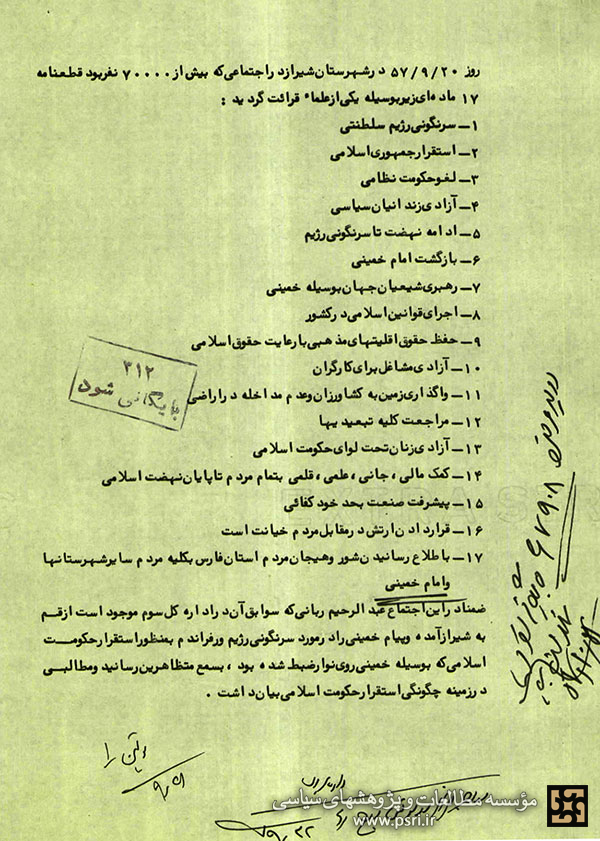 روز ۵۷/۹/۲۰ در شهرستان شیراز در اجتماعی که بیش از ۷۰۰۰۰ نفر بود قطعنامه
۱۷ ماده‌ای زیر بوسیله یکی از علماء قرائت گردید :
۱ــ سرنگونی رژیم سلطنتی
۲ــ استقرار جمهوری اسلامی
۳ــ لغو حکومت نظامی
۴ــ آزادی زندانیان سیاسی
۵ــ ادامه نهضت تا سرنگونی رژیم
۶ــ بازگشت امام خمینی
۷ــ رهبری شیعیان جهان بوسیله خمینی
۸ــ اجرای قوانین اسلامی در کشور
۹ــ حفظ حقوق اقلیتهای مذهبی با رعایت حقوق اسلامی
۱۰ــ آزادی مشاغل برای کارگران
۱۱ــ واگذاری زمین به کشاورزان و عدم مداخله در اراضی
۱۲ــ مراجعت کلیه تبعیدیها
۱۳ــ آزادی زنان تحت لوای حکومت اسلامی
۱۴ــ کمک مالی ، جانی ، علمی ، قلمی بتمام مردم تا پایان نهضت اسلامی
۱۵ــ پیشرفت صنعت بحد خود کفائی
۱۶ــ قرار دادن ارتش در مقابل مردم خیانت است
۱۷ــ با طلاع رسانیدن شور و هیجان مردم استان فارس بکلیه مردم سایر شهرستانها
و امام خمینی
ضمنا در این اجتماع عبد الرحیم ربانی که سوابق آن در اداره کل سوم موجود است از قم
به شیراز آمده و پیام خمینی را در مورد سرنگونی رژیم و رفراندم بمنظور استقرار حکومت
اسلامی که بوسیله خمینی روی نوار ضبط شده بود ، بسمع متظاهرین رسانید و مطالبی
در زمینه چگونگی استقرار حکومت اسلامی بیان داشت .
۳۱۲
بایگانی شود
مؤسسه مطالعات و پژوهشهای سیاسی
www.psri.ir